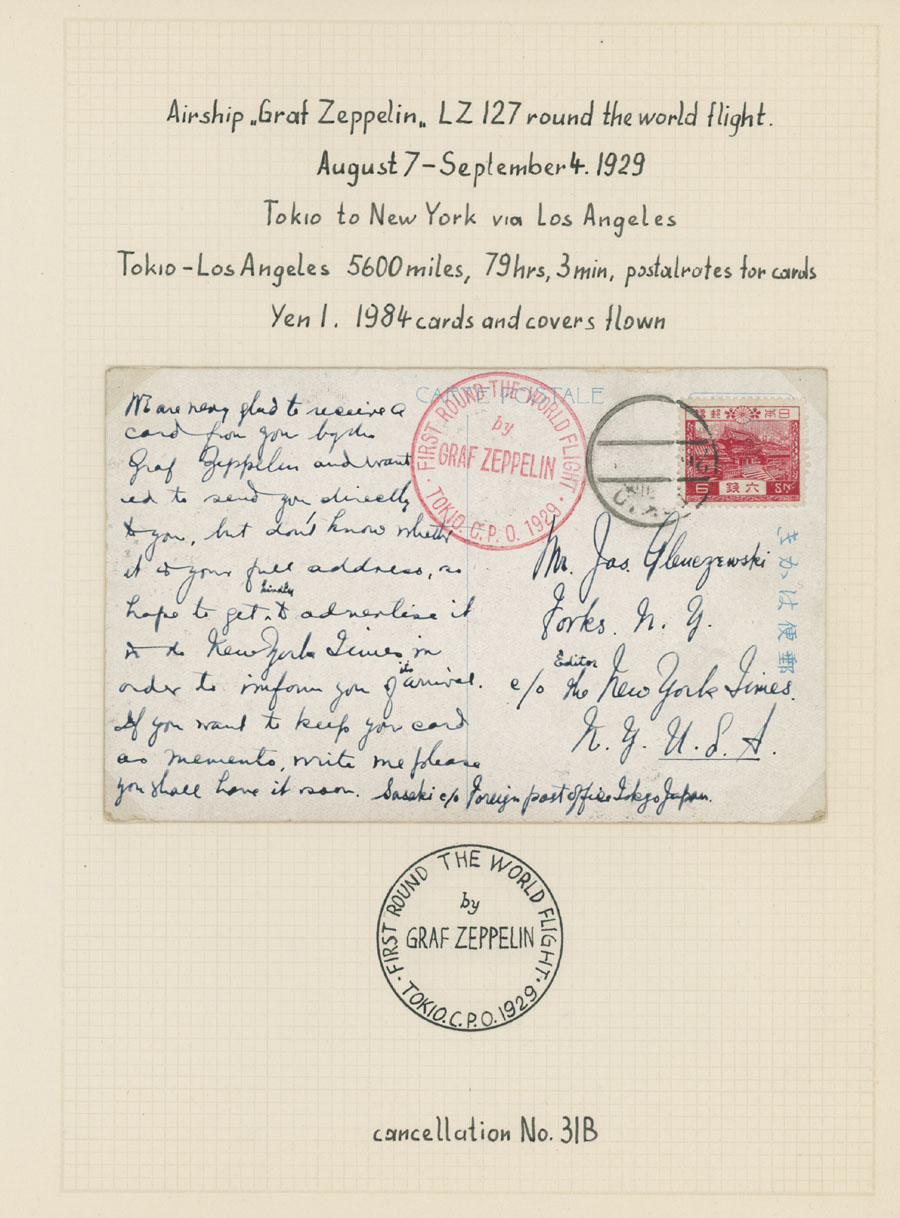 Airship „Graf Zeppelin„ LZ 127 round the world flight.
August 7 – September 4. 1929
Tokio to New York via Los Angeles
Tokio – Los Angeles 5600 miles, 79 hrs, 3 min, postalrates for cards
Yen 1. 1984 cards and covers flown
CARTE POSTALE
FIRST ROUND THE WORLD FLIGHT
by
GRAF ZEPPELIN
TOKIO. C. P. O. 1929
日本郵便
6 錢六 SN.
We are very glad to receive a
card from you by the
Graf Zeppelin and want
ed to send you directly
to you, but don't know whether
it is your full address, so
kindly
hope to get to advertise it
to do New York Times in
its
order to inform you of arrival.
If you want to keep your card
as memento, write me please
you shall have it soon. Sasaki c/o Foreign post office Tokyo Japan.
Mr. Jas.
Forks. N. Y.
Editor
c/o the New York Times.
N. Y. U. S. A.
きかは便郵
FIRST ROUND THE WORLD FLIGHT
by
GRAF ZEPPELIN
TOKIO. C. P. O. 1929
cancellation No. 31B